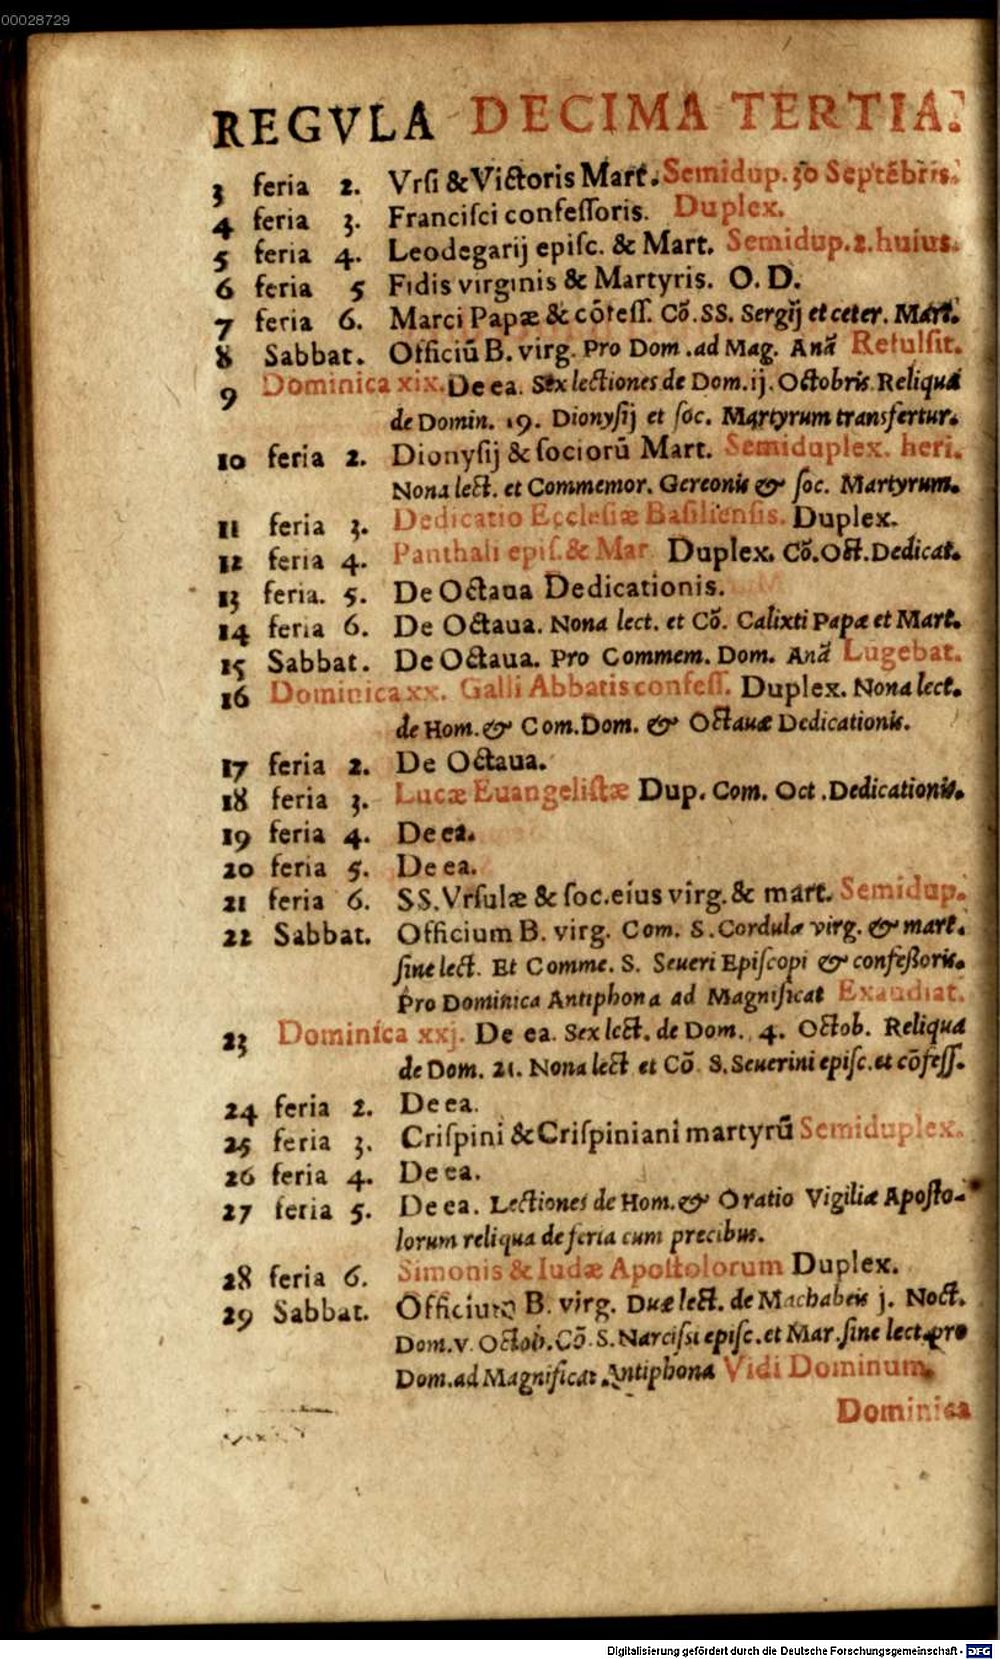 00028729
REGVLA DECIMA TERTIA.
3 feria 2. Vrſi & Victoris Mart. Semidup. 30 Septēbris.
4 feria 3. Franciſci confeſſoris. Duplex.
5 feria 4. Leodegarij epiſc. & Mart. Semidup. 2. huius.
6 feria 5 Fidis virginis & Martyris. O. D.
7 feria 6. Marci Papæ & cōfeſſ. Cō. SS. Sergij et ceter. Mart.
8 Sabbat. Officiū B. virg. Pro Dom. ad Mag. Anā Refulſit.
9 Dominica xix. De ea. Sex lectiones de Dom. ij. Octobris. Reliqua
de Domin. 19. Dionyſij et ſoc. Martyrum transfertur.
10 feria 2. Dionyſij & ſociorū Mart. Semiduplex. heri.
Nona lect. et Commemor. Gereonis & ſoc. Martyrum.
11 feria 3. Dedicatio Eccleſiæ Baſilienſis. Duplex.
12 feria 4. Panthali epiſ. & Mar. Duplex. Cō. Oct. Dedicat.
13 feria. 5. De Octaua Dedicationis.
14 feria 6. De Octaua. Nona lect. et Cō. Calixti Papæ et Mart.
15 Sabbat. De Octaua. Pro Commem. Dom. Anā Lugebat.
16 Dominica xx. Galli Abbatis confeſſ. Duplex. Nona lect.
de Hom. & Com. Dom. & Octauæ Dedicationis.
17 feria 2. De Octaua.
18 feria 3. Lucæ Euangeliſtæ Dup. Com. Oct. Dedicationis.
19 feria 4. De ea.
20 feria 5. De ea.
21 feria 6. SS. Vrſulæ & ſoc. eius virg. & mart. Semidup.
22 Sabbat. Officium B. virg. Com. S. Cordulæ virg. & mart.
ſine lect. Et Comme. S. Seueri Epiſcopi & confeßoris.
Pro Dominica Antiphona ad Magnificat Exaudiat.
23 Dominica xxj. De ea. Sex lect. de Dom. 4. Octob. Reliqua
de Dom. 21. Nona lect et Cō S. Seuerini epiſc. et cōfeſſ.
24 feria 2. De ea.
25 feria 3. Criſpini & Criſpiniani martyrū Semiduplex.
26 feria 4. De ea.
27 feria 5. De ea. Lectiones de Hom. & Oratio Vigiliæ Apoſto-
lorum reliqua de feria cum precibus.
28 feria 6. Simonis & Iudæ Apoſtolorum Duplex.
29 Sabbat. Officium B. virg. Duæ lect. de Machabeis j. Noct.
Dom. v. Octob. Cō. S. Narciſsi epiſc. et Mar. ſine lect. pro
Dom. ad Magnificat Antiphona Vidi Dominum.
Dominica
Digitalisierung gefördert durch die Deutsche Forschungsgemeinschaft - DFG